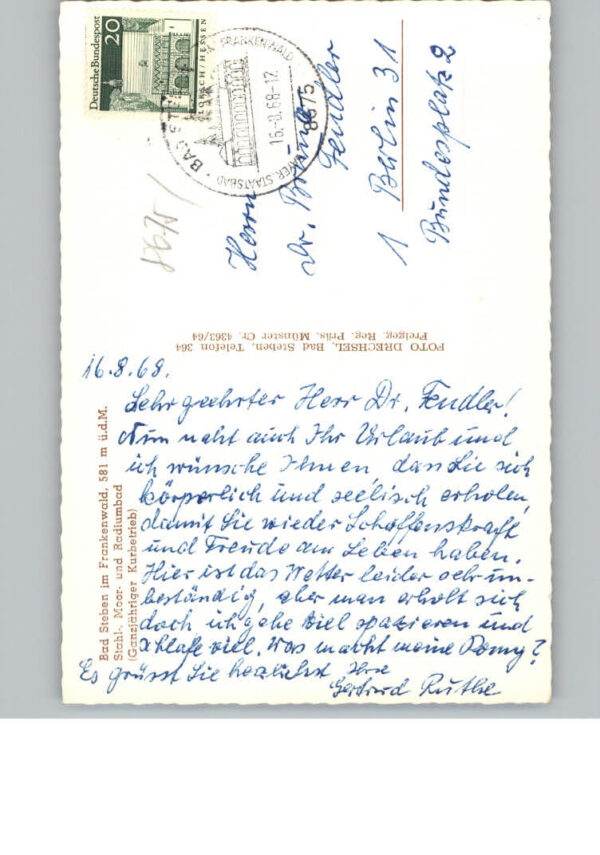 Deutsche Bundespost
20
LORSCH/HESSEN
BAD STEBEN
FRANKENWALD
16.-8.68-12
8675
BAYER. STAATSBAD
8675
Herrn
Dr. Bruno
Fendler
1 Berlin 31
Bundesplatz 2
FOTO DRECHSEL, Bad Steben, Telefon 364
Freigeg. Reg. Präs. Münster Cr. 4363/64
Bad Steben im Frankenwald, 581 m ü.d.M.
Stahl-, Moor- und Radiumbad
(Ganzjähriger Kurbetrieb)
16.8.68.
Sehr geehrter Herr Dr. Fendler!
Nun naht auch Ihr Urlaub und
ich wünsche Ihnen, dass Sie sich
körperlich und seelisch erholen,
damit Sie wieder Schaffenskraft
und Freude am Leben haben.
Hier ist das Wetter leider sehr un-
beständig, aber man erholt sich
doch ich gehe viel spazieren und
schlafe viel. Was macht meine Romy?
Es grüsst Sie herzlichst Ihre
Gertrud Ruthe